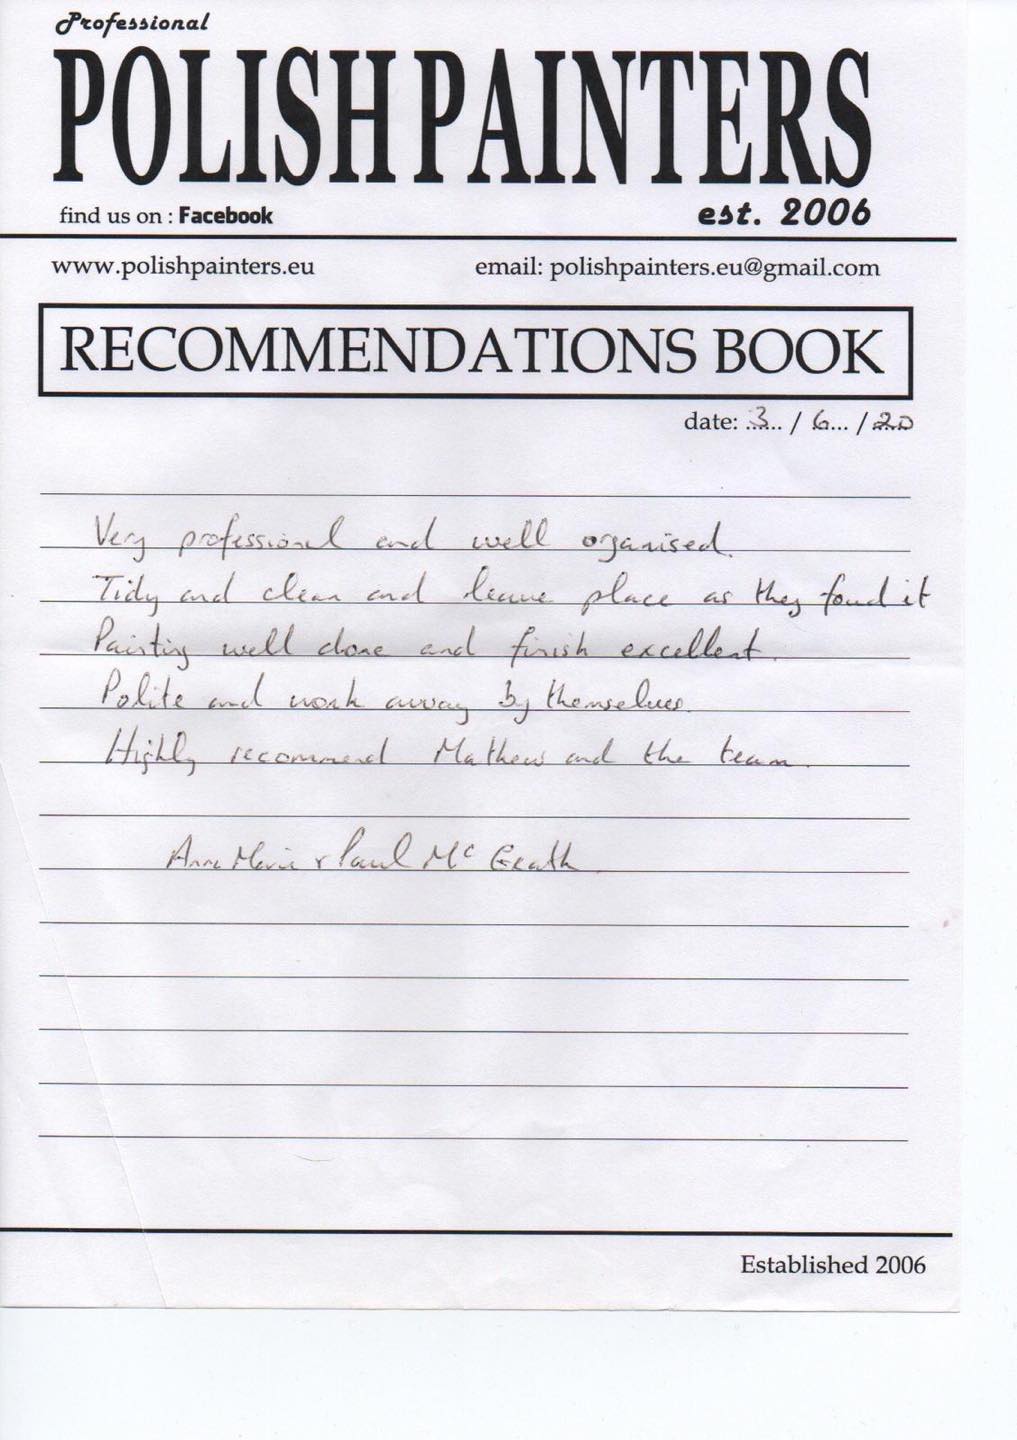 Professional
POLISH PAINTERS
find us on : Facebook
est. 2006
www.polishpainters.eu
email: polishpainters.eu@gmail.com
RECOMMENDATIONS BOOK
date: .3... / 6... / 20
Very professional and well organised.
Tidy and clean and leave place as they foud it
Painting well done and finish excellent.
Polite and work away by themselves.
Highly recommend Mathew and the team.
Anne Marie + Paul Mc Grath.
Established 2006